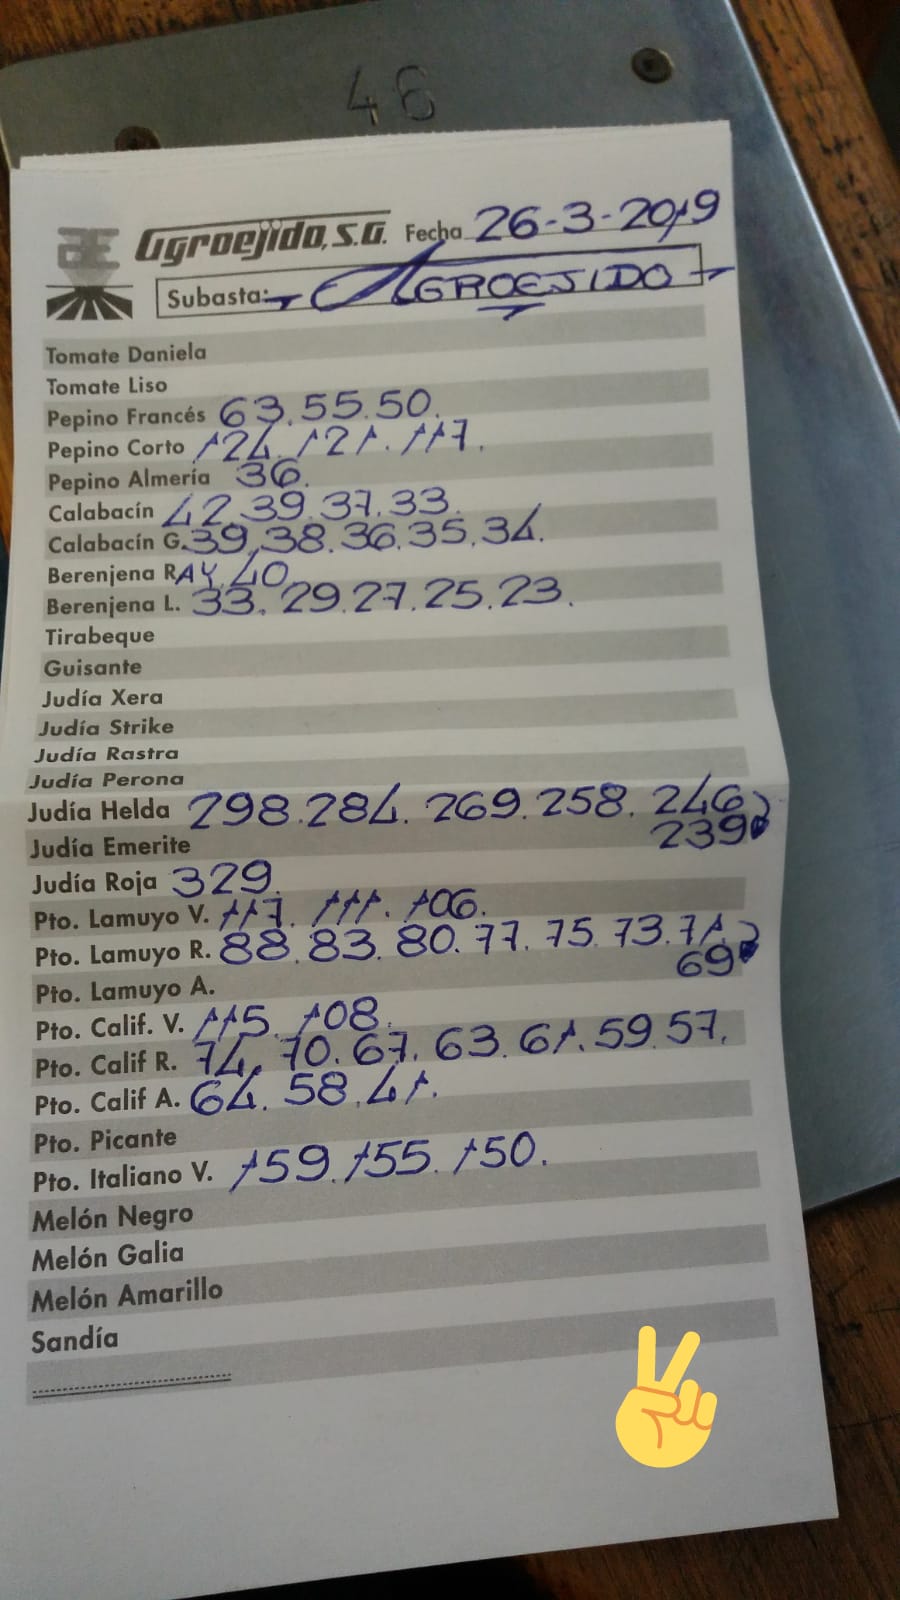 46
Agroejido, S.A. Fecha 26-3-2019
Subasta: AGROEJIDO
Tomate Daniela
Tomate Liso
Pepino Francés 63.55.50.
Pepino Corto 124.121.117.
Pepino Almería 36.
Calabacín 42.39.37.33.
Calabacín G. 39.38.36.35.34.
Berenjena RAY. 40
Berenjena L. 33.29.27.25.23.
Tirabeque
Guisante
Judía Xera
Judía Strike
Judía Rastra
Judía Perona
Judía Helda 298.284.269.258.246
Judía Emerite 239
Judía Roja 329.
Pto. Lamuyo V. 117.111.106.
Pto. Lamuyo R. 88.83.80.77.75.73.71.
69
Pto. Lamuyo A.
Pto. Calif. V. 115.108.
Pto. Calif R. 74.70.67.63.61.59.57.
Pto. Calif A. 64.58.41.
Pto. Picante
Pto. Italiano V. 159.155.150.
Melón Negro
Melón Galia
Melón Amarillo
Sandía